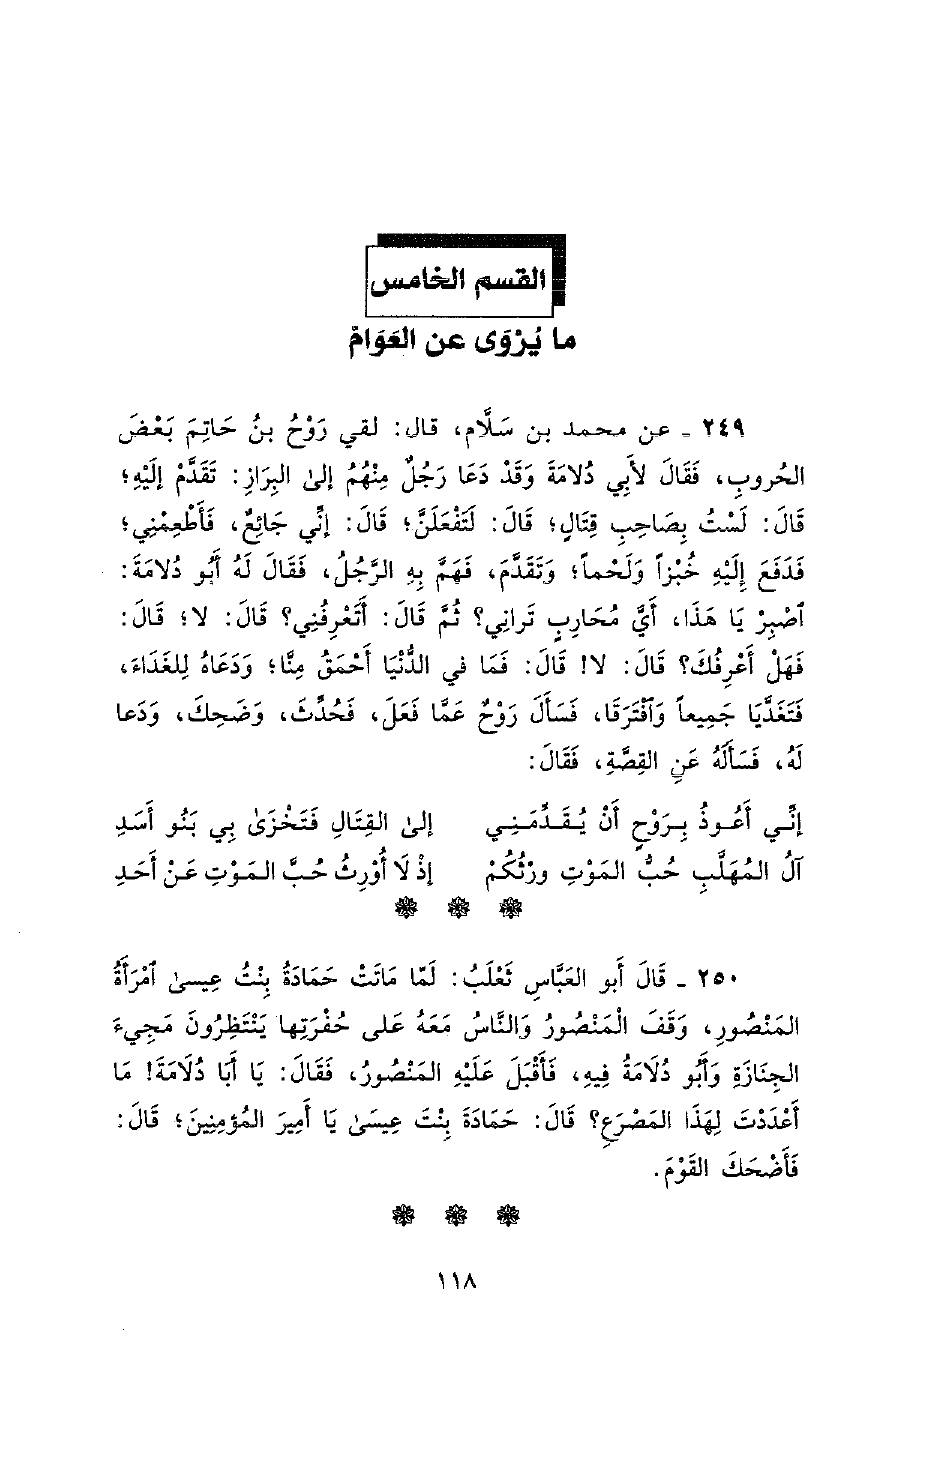 القسم الخامس
ما يُرْوَى عن العَوَامّ
٢٤٩ ـ عن محمد بن سَلَّام، قال: لقي رَوْحُ بنُ حَاتِمَ بَعْضَ
الحُروبِ، فَقَالَ لأَبي دُلامَةَ وَقَدْ دَعَا رَجُلٌ مِنْهُمُ إلىٰ البِرَازِ: تَقَدَّمْ إِلَيْهِ؛
قَالَ: لَسْتُ بِصَاحِبِ قِتَالٍ؛ قَالَ: لَتَفْعَلَنَّ؛ قَالَ: إِنِّي جَائِعٌ، فَأَطْعِمْنِي؛
فَدَفَعَ إِلَيْهِ خُبْزاً وَلَحْماً؛ وَتَقَدَّمَ، فَهَمَّ بِهِ الرَّجُلُ، فَقَالَ لَهُ أَبُو دُلامَةَ:
ٱصْبِرْ يَا هَذَا، أَيَّ مُحَارِبٍ تَراني؟ ثُمَّ قَالَ: أَتَعْرِفُنِي؟ قَالَ: لا؛ قَالَ:
فَهَلْ أَعْرِفُكَ؟ قَالَ: لا! قَالَ: فَمَا في الدُّنْيَا أَحْمَقُ مِنَّا؛ وَدَعَاهُ لِلغَدَاءَ،
فَتَغَدَّيَا جَمِيعاً وَٱفْتَرَقَا، فَسَأَلَ رَوْحٌ عَمَّا فَعَلَ، فَحُدِّثَ، وَضَحِكَ، وَدَعا
لَهُ، فَسَأَلَهُ عَنِ القِصَّةِ، فَقَالَ:
إنِّـي أَعُـوذُ بِـرَوْحٍ أَنْ يُـقَـدِّمَـنِـي إلىٰ القِتَالِ فَتَخْزَىٰ بِي بَنُو أَسَدِ
آلُ المُهَلَّبِ حُبُّ المَوْتِ وِرْثُكُمْ إذْ لَا أُوْرِثُ حُبَّ المَوْتِ عَنْ أَحَدِ
٢٥٠ ـ قَالَ أَبو العَبَّاسِ ثَعْلَبُ: لَمَّا مَاتَتْ حَمَادَةُ بِنْتُ عِيسىٰ ٱمْرَأَةُ
المَنْصُورِ، وَقَفَ الْمَنْصُورُ وَالنَّاسُ مَعَهُ عَلى حُفْرَتِها يَنْتَظِرُونَ مَجِيءَ
الجِنَازَةِ وَأَبُو دُلَامَةُ فِيهِ، فَأَقْبَلَ عَلَيْهِ المَنْصُورُ، فَقَالَ: يَا أَبَا دُلَامَةَ! مَا
أَعْدَدْتَ لِهَذَا المَصْرَعِ؟ قَالَ: حَمَادَةَ بِنْتَ عِيسَىٰ يَا أَمِيرَ المُؤمِنِينَ؛ قَالَ:
فَأَضْحَكَ القَوْمَ.
١١٨